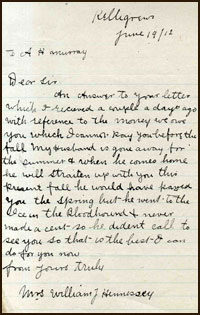 Killigrews
June 19/12
To A H Murray
Dear Sir.
An Answer to your letter
which I recieved a couple a days ago
with reference to the money we owe
you which I cannot Pay you before the
fall My Husband is gone away for
the summer & when he comes home
he will straiten up with you this
present fall he would have payed
you the Spring but he went to the
Ice in the Bloodhound & never
made a cent so he dident call to
see you so that is the best I can
do for you now
from yours Truly
Mrs William J Hennessey